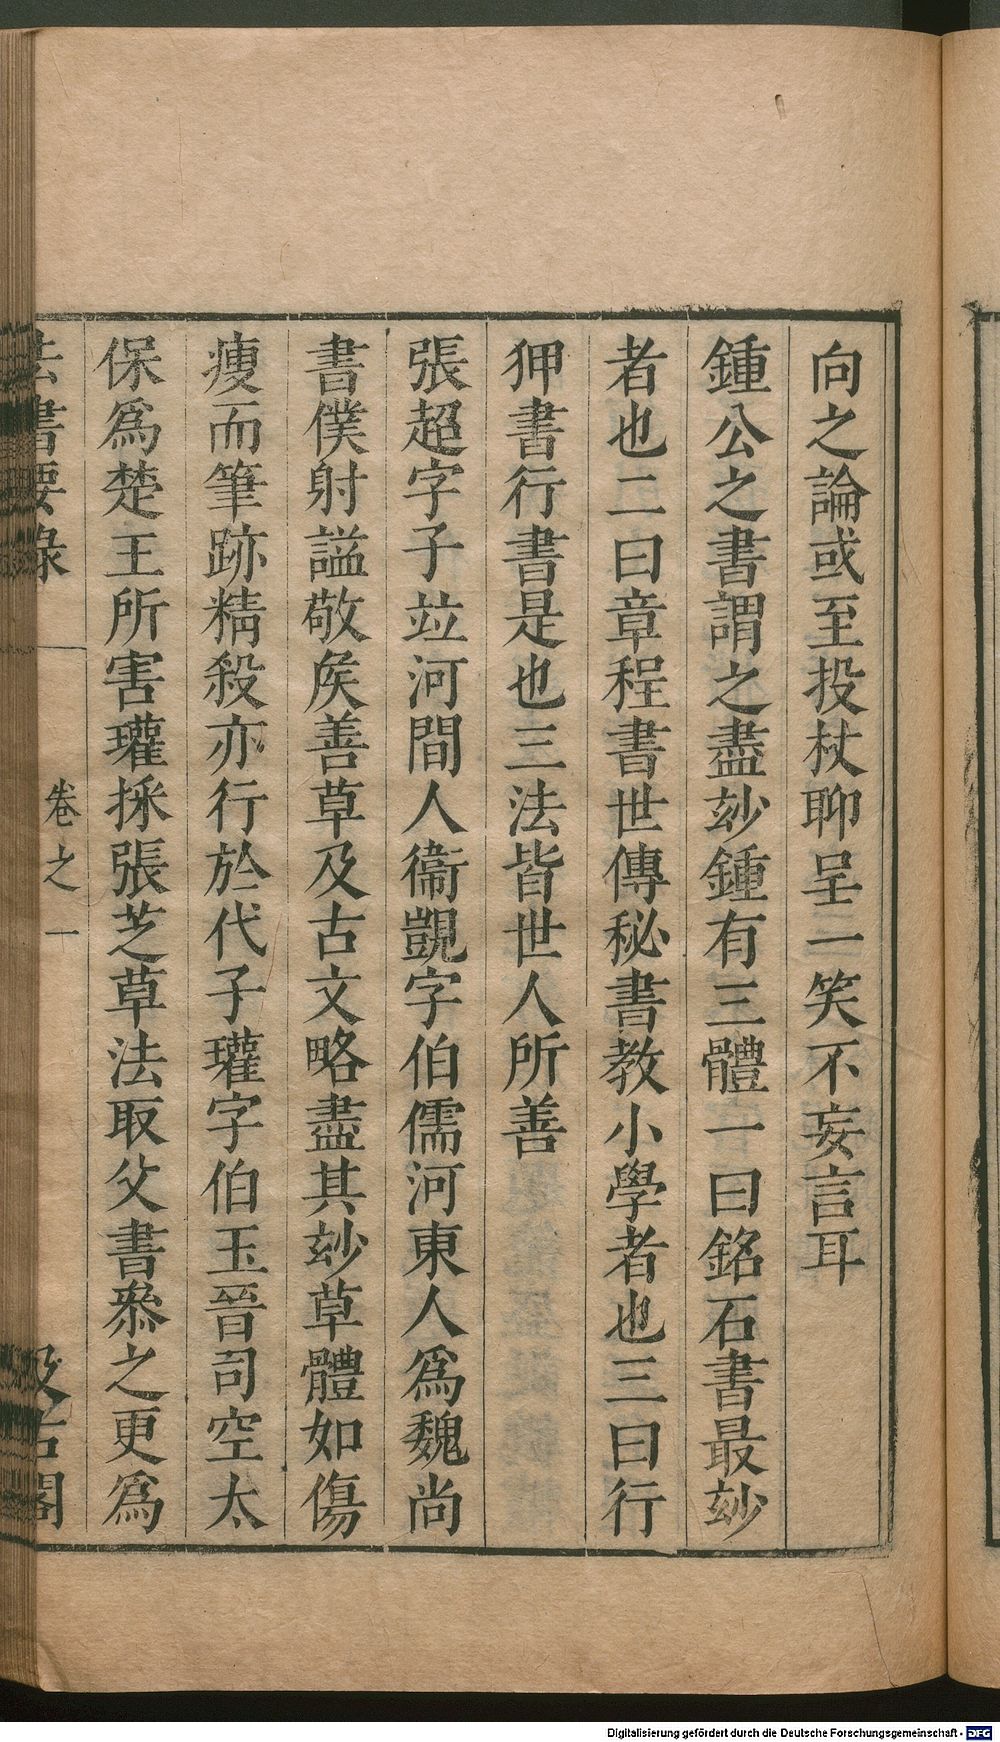 向之論或至投杖聊呈一笑不妄言耳
鍾公之書謂之盡玅鍾有三體一曰銘石書最玅
者也二曰章程書世傳秘書教小學者也三曰行
狎書行書是也三法皆世人所善
張超字子竝河間人衞覬字伯儒河東人爲魏尚
書僕射謚敬矦善草及古文略盡其玅草體如傷
瘦而筆跡精殺亦行於代子瓘字伯玉晉司空太
保爲楚王所害瓘採張芝草法取父書叅之更爲
法書要錄 卷之一 汲古閣
Digitalisierung gefördert durch die Deutsche Forschungsgemeinschaft - DFG